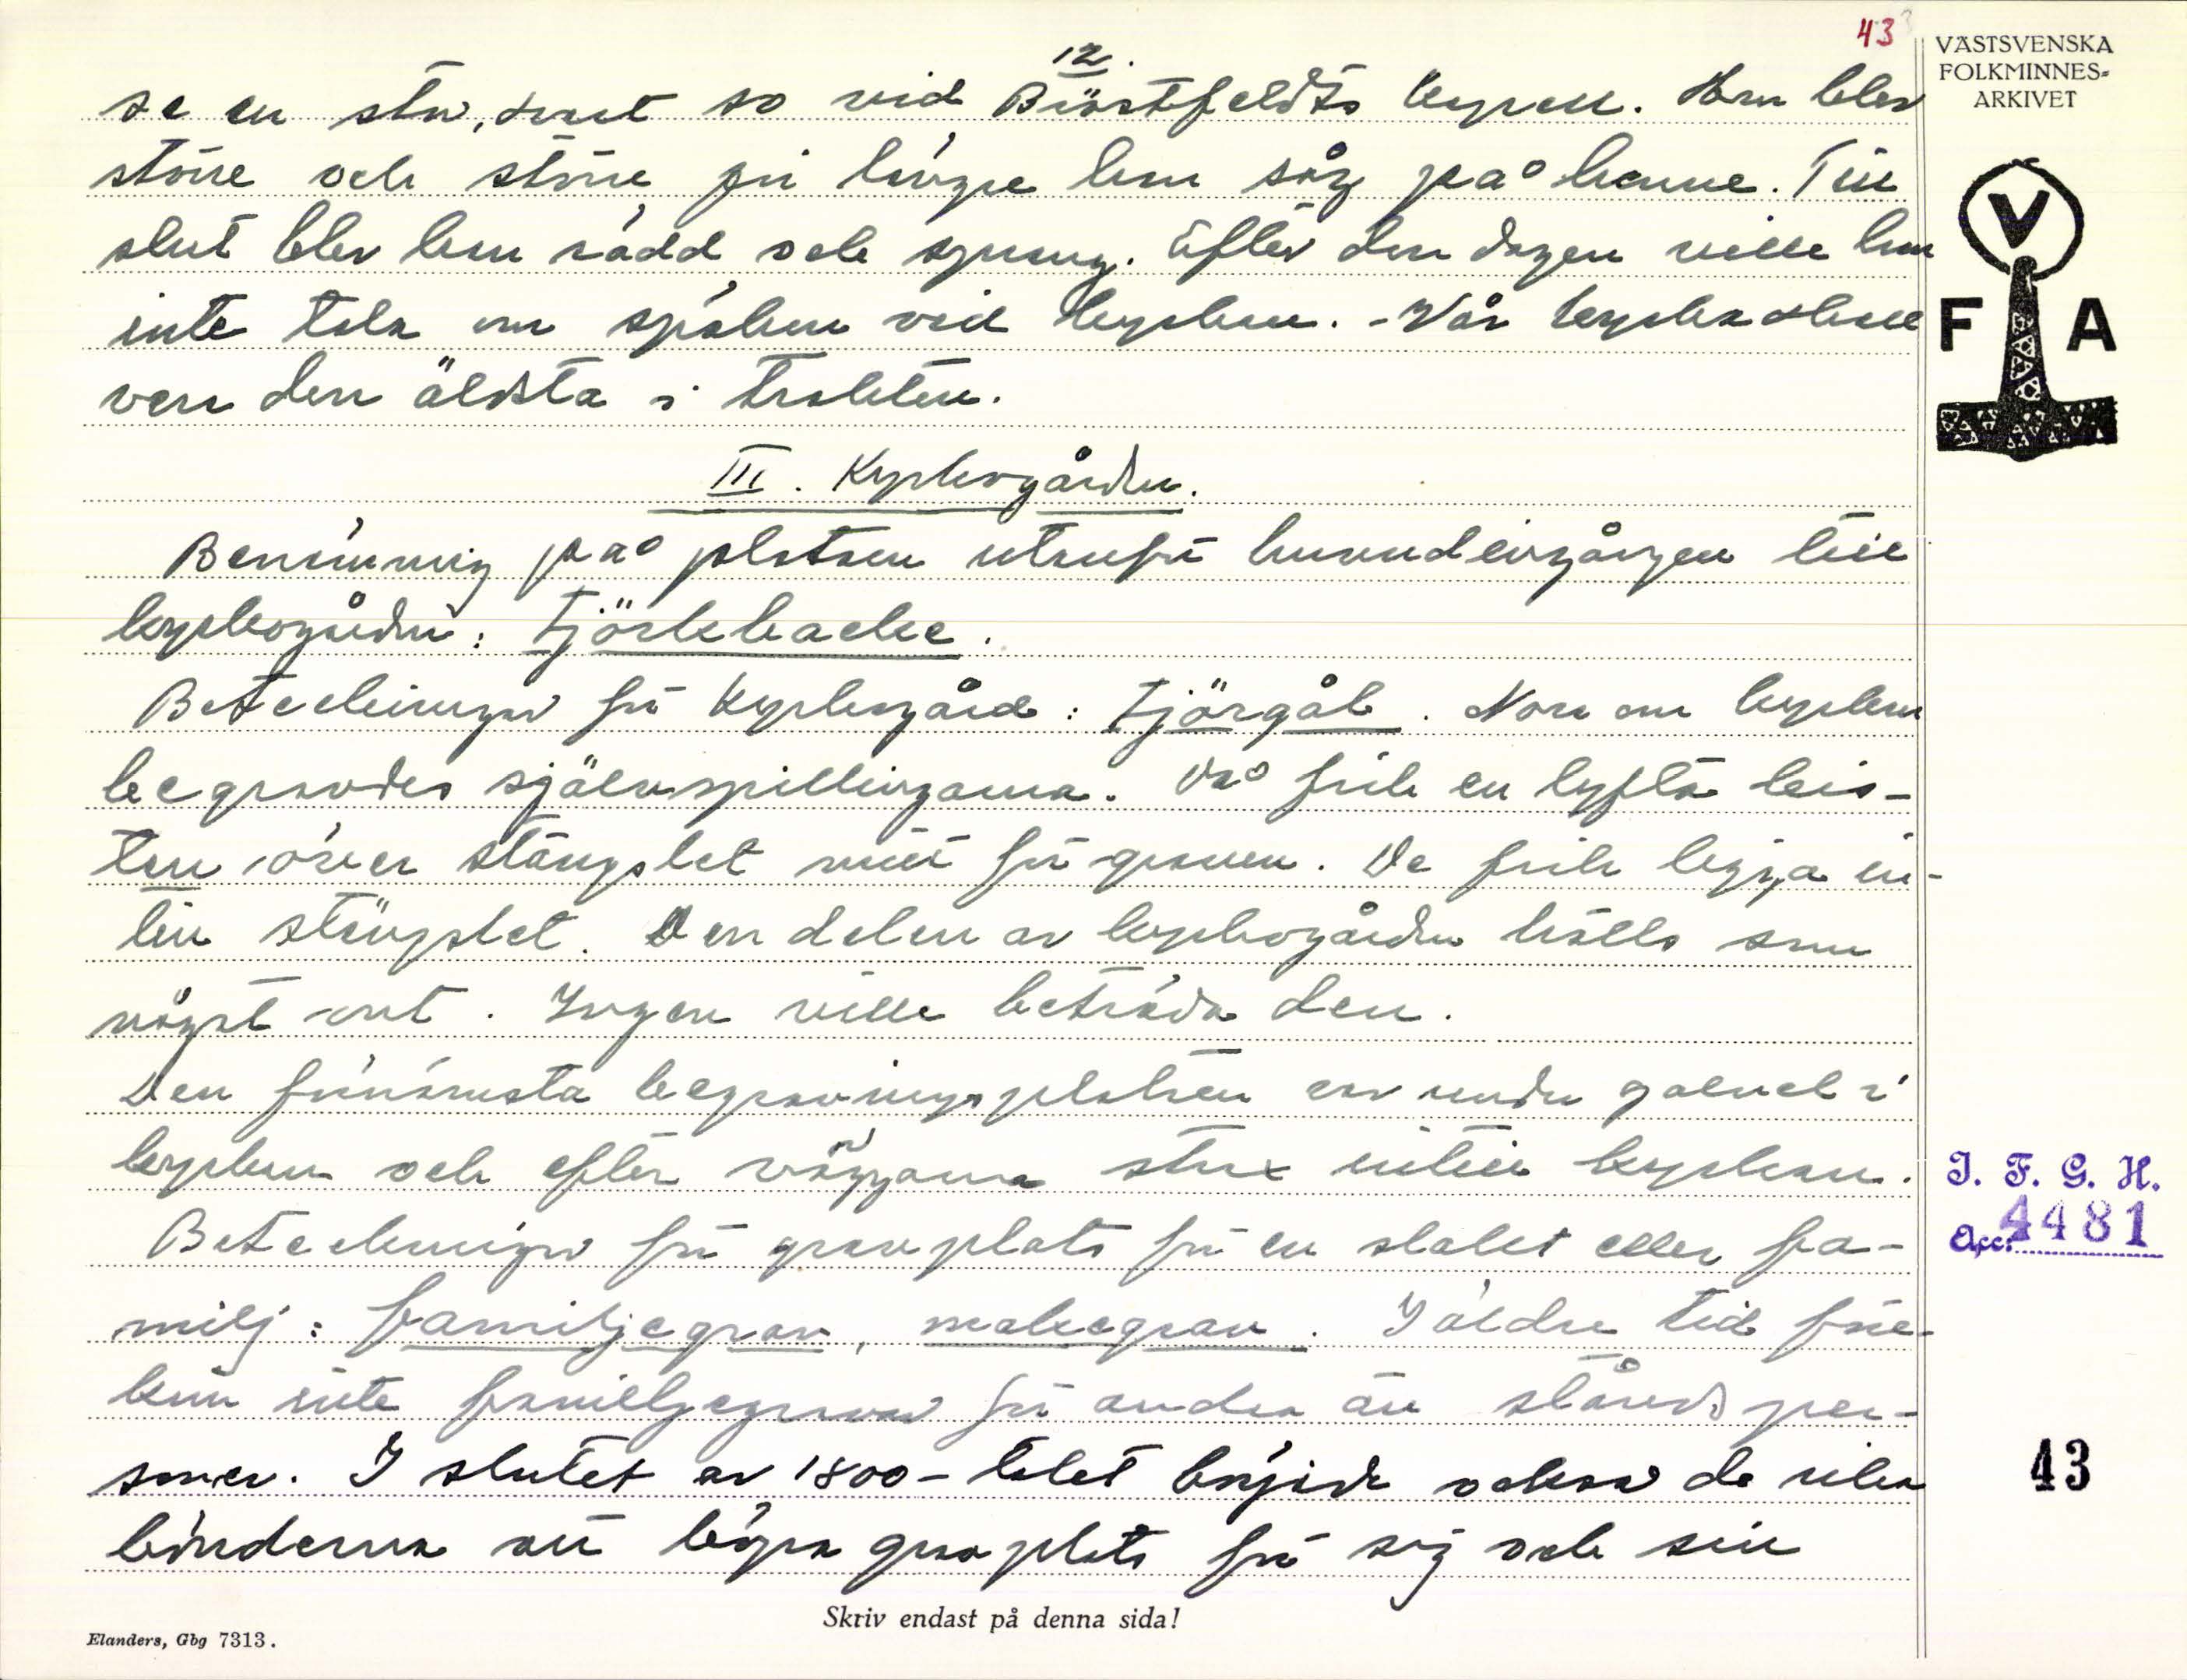 43
12.
se en stor, svart so vid Buastfeldts kapell. Hon blev
större och större ju längre han såg på henne. Till
slut blev han rädd och sprang. Efter den dagen ville han
inte tala om spöken vid kyrkan. - Vår kyrka skall
vara den äldsta i trakten.
III. Kyrkogården.
Benämning på platsen utanför huvudingången till
kyrkogården: tjörkbacke.
Beteckningar för kyrkogård: tjörgål. Norr om kyrkan
begravdes självspillingarna. Då fick en lyfta kis-
tan över stängslet mitt för graven. De fick ligga in-
till stängslet. Den delen av kyrkogården hålls som
något ont. Ingen ville beträda den.
Den förnämsta begravningsplatsen var under golvet i
kyrkan och efter väggarna strax intill kyrkan.
Beteckningar för gravplats för en släkt eller fa-
milj: familjegrav, makegrav. I äldre tid före-
kom inte familjegravar för andra än stånds per-
soner. I slutet av 1800-talet började också de rika
bönderna att köpa gravplats för sig och sin
VÄSTSVENSKA
FOLKMINNES-
ARKIVET
V
F A
I. F. G. H.
Acc. 4481
43
Skriv endast på denna sida!
Elanders, Gbg 7313.